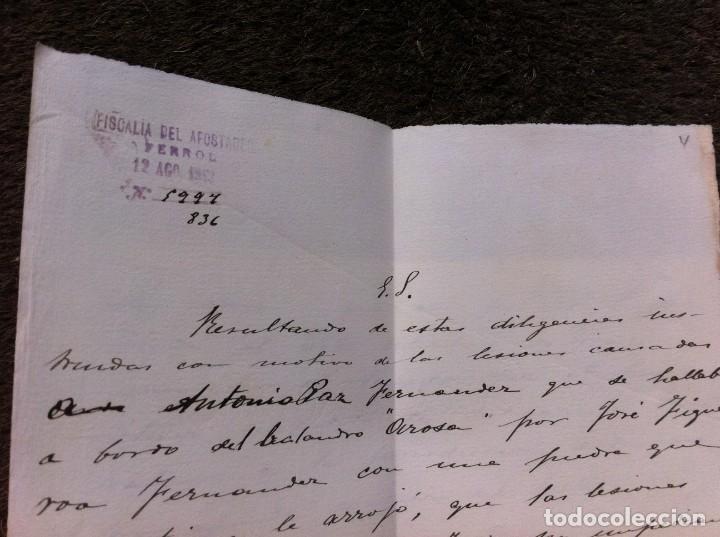 FISCALÍA DEL APOSTADERO
FERROL
12 AGO
N. 5997
836
E. S.
Resultando de estas diligencias ins-
truidas con motivo de las lesiones causadas
a Antonio Paz Fernandez que se hallab
a bordo del balandro "Arosa" por José Figue
roa Fernandez con una piedra que
le arrojó, que las lesiones
todocoleccion.net